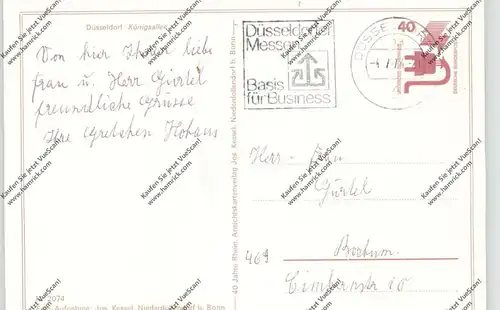 Düsseldorf Königsallee
Von hier Ihnen, liebe
Frau u. Herr Gürtel
freundliche Grüsse
Ihre Gretchen Hohaus
2074
Aufnahme: Jos. Kessel, Niederdollendorf b. Bonn
40 Jahre Rhein. Ansichtskartenverlag Jos. Kessel, Niederdollendorf b. Bonn
Düsseldorfer
Messen
Basis
für Business
DÜSSEL
40
Herr - Frau
Gürtel
469
Bochum
Cimbernstr 20
Kaufen Sie jetzt VueScan!
www.hamrick.com